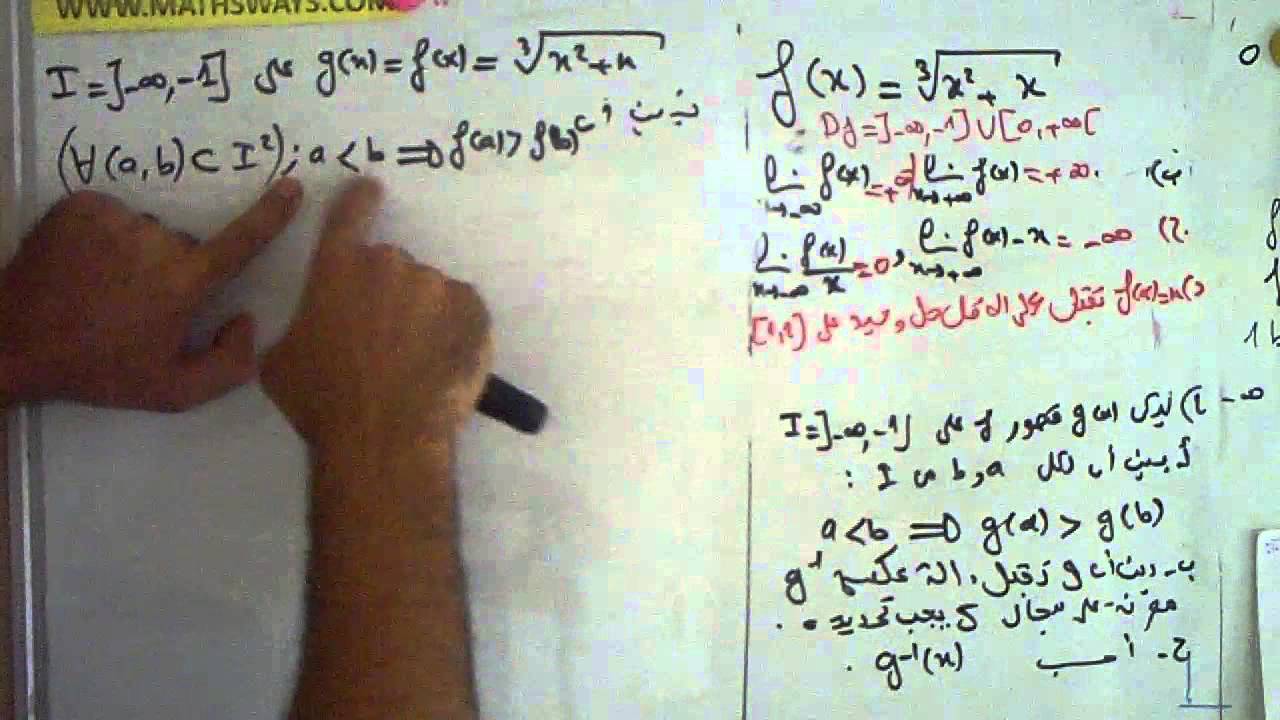 WWW.MATHSWAYS.COM
I = ]-∞, -1] على g(x) = f(x) = ∛(x²+x)
(∀(a,b) ⊂ I²); a < b ⇒ f(a) > f(b)
f(x) = ∛(x² + x)
Df = ]-∞, -1] ∪ [0, +∞[
lim f(x) = +∞ x→-∞ lim f(x) = +∞. x→+∞
lim f(x)/x = 0 x→-∞, lim f(x) - x = -∞ x→+∞
f(x) = x تقبل على الاقل حل وحيد على [1,2]
2) ليكن g(x) قصور f على I = ]-∞, -1]
أ بين أن لكل a و b من I :
a < b ⇒ g(a) > g(b)
ب - بين أن g تقبل دالة عكسية g⁻¹
معرفة على مجال J يجب تحديده.
2 - أحسب g⁻¹(x).